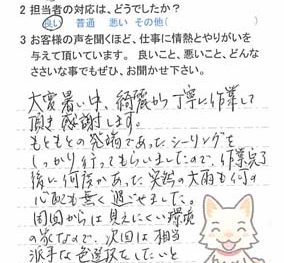 2 担当者の対応は、どうでしたか？
良い 普通 悪い その他( )
3 お客様の声を聞くほど、仕事に情熱とやりがいを
与えて頂いています。 良いこと、悪いこと、どんな
ささいな事でもぜひ、お聞かせ下さい。
大変暑い中、綺麗かつ丁寧に作業して
頂き感謝します。
もともとの発端であったシーリングを
しっかり行ってもらいましたので、作業完了
後に何度かあった突然の大雨も何の
心配も無く過ごせました。
周囲からは見えにくい環境
の家なので、次回は相当
派手な色選択をしたいと